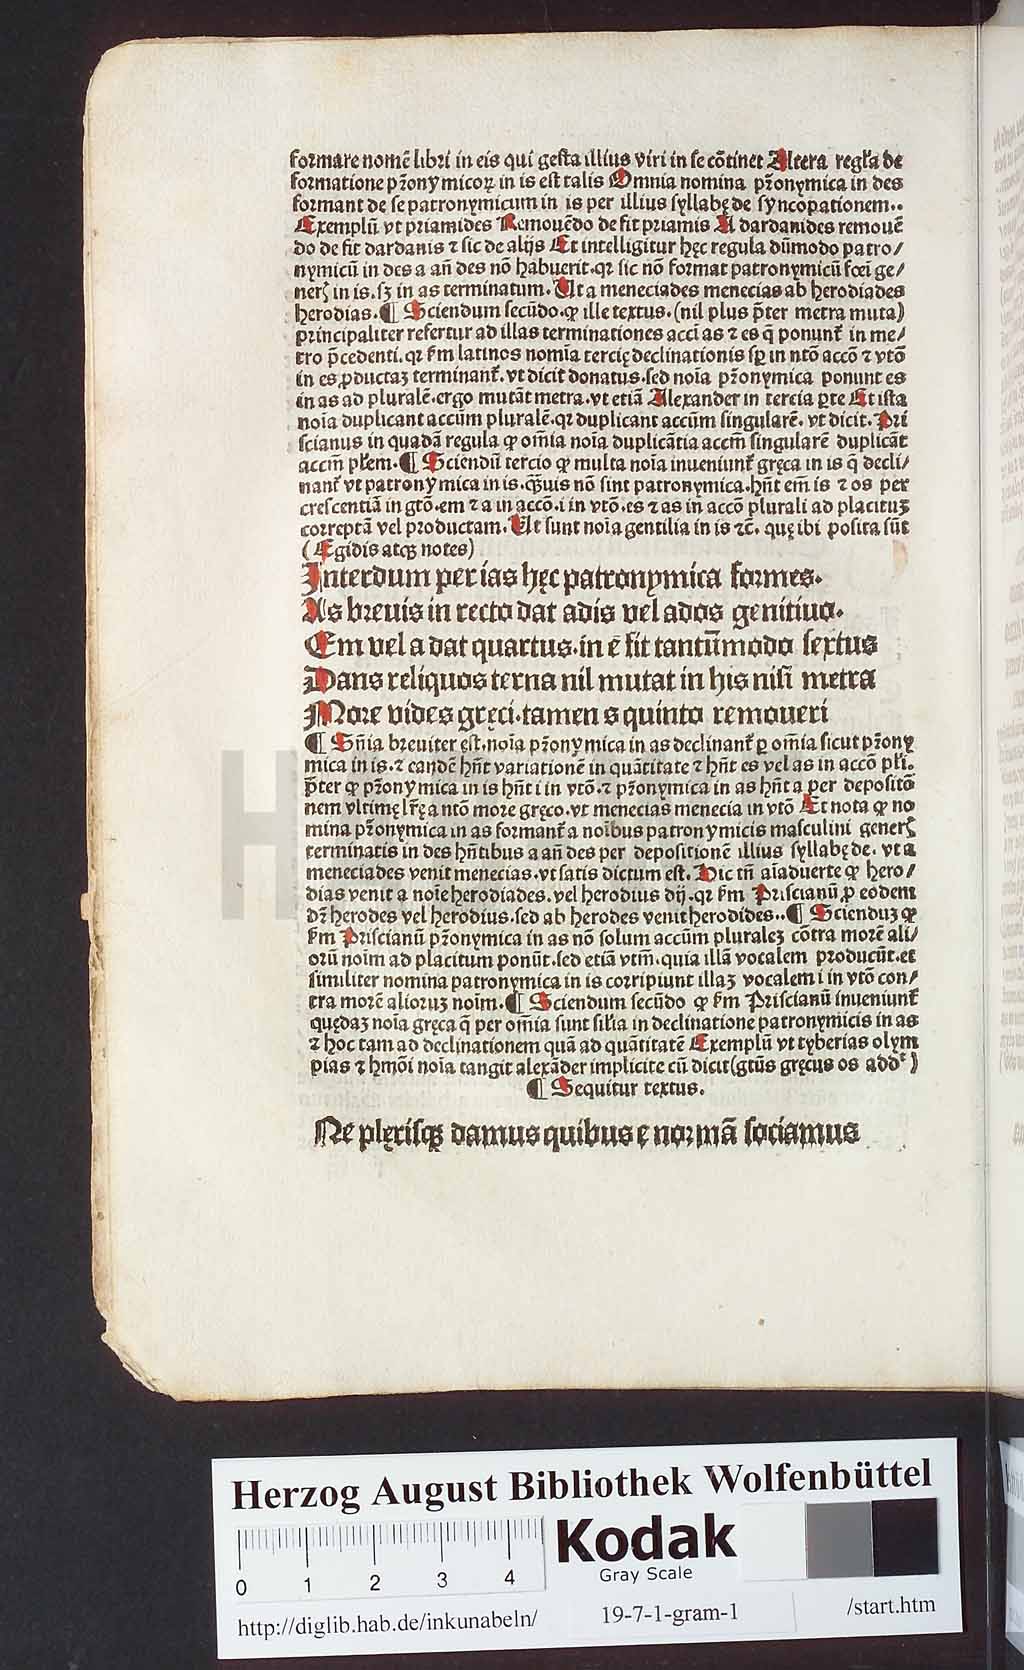 formare nomē libri in eis qui gesta illius viri in se cōtinet Altera regl̄a de
formatione pr̄onymicoꝝ in is est talis Omnia nomina pr̄onymica in des
formant de se patronymicum in is per illius syllabę de syncopationem..
Exemplū vt priamides Remouēdo de fit priamis A dardanides remouē
do de fit dardanis ⁊ sic de alijs Et intelligitur hęc regula dūmodo patro/
nymicū in des a an̄ des nō habuerit.qꝛ sic nō format patronymicū fœi ge/
neris in is.sꝫ in as terminatum. Vt a meneciades menecias ab herodiades
herodias.¶ Sciendum secūdo.ꝙ ille textus.(nil plus p̄ter metra muta)
principaliter refertur ad illas terminationes acci as ⁊ es q̄ ponunt̄ in me/
tro p̄cedenti.qꝛ k̄m latinos nomīa tercię declinationis sꝑ in ntō accō ⁊ vtō
in es ꝓductaꝫ terminant̄.vt dicit donatus.sed noīa pr̄onymica ponunt es
in as ad pluralē.ergo mutāt metra.vt etiā Alexander in tercia ꝑte Et ista
noīa duplicant accūm pluralē.qꝛ duplicant accūm singularē. vt dicit. Pri
scianus in quadā regula ꝙ om̄ia noīa duplicātia accm̄ singularē duplicāt
accm̄ pl̄em.¶ Sciendū tercio ꝙ multa noīa inueniunt̄ gręca in is q̄ decli/
nant̄ vt patronymica in is.q̄uis nō sint patronymica.hn̄t em̄ is ⁊ os per
crescentiā in gtō.em ⁊ a in accō.i in vtō.es ⁊ as in accō plurali ad placituꝫ
correptā vel productam. Vt sunt noīa gentilia in is ⁊c̄. quę ibi posita sūt
(Egidis atqꝫ notes)
Interdum per ias hęc patronymica formes.
As breuis in recto dat adis vel ados genitiuo.
Em vel a dat quartus.in ē fit tantūmodo sextus
Dans reliquos terna nil mutat in his nisi metra
More vides gręci.tamen s quinto remoueri
¶ Sn̄ia breuiter ęst.noīa pr̄onymica in as declinant̄ ꝑ om̄ia sicut pr̄ony
mica in is.⁊ eandē hn̄t variationē in quātitate ⁊ hn̄t es vel as in accō pl̄i.
p̄ter ꝙ pr̄onymica in is hn̄t i in vtō.⁊ pr̄onymica in as hn̄t a per depositō
nem vltimę lr̄ę a ntō more gręco.vt menecias menecia in vtō Et nota ꝙ no
mina pr̄onymica in as formant̄ a noībus patronymicis masculini generis
terminatis in des hn̄tibus a an̄ des per depositionē illius syllabę de. vt a
meneciades venit menecias.vt satis dictum est. Hic tn̄ aīaduerte ꝙ hero/
dias venit a noīe herodiades.vel herodius dij.qꝛ k̄m Priscianū ꝓ eodem
dꝛ herodes vel herodius.sed ab herodes venit herodides..¶ Scienduꝫ ꝙ
k̄m Priscianū pr̄onymica in as nō solum accūm pluraleꝫ cōtra morē ali/
orū noīm ad placitum ponūt.sed etiā vtm̄.quia illā vocalem producūt.et
similiter nomina patronymica in is corripiunt illaꝫ vocalem i in vtō con/
tra morē alioruꝫ noīm.¶ Sciendum secūdo ꝙ k̄m Priscianū inueniunt̄
quędaꝫ noīa gręca q̄ per om̄ia sunt sil̄ia in declinatione patronymicis in as
⁊ hoc tam ad declinationem quā ad quātitatē Exemplū vt tyberias olym
pias ⁊ hmōi noīa tangit alexāder implicite cū dicit(gtūs gręcus os addᵗ)
¶ Sequitur textus.
Ne plęrisqꝫ damus quibus ę normā sociamus
Herzog August Bibliothek Wolfenbüttel
0 1 2 3 4
Kodak
Gray Scale
http://diglib.hab.de/inkunabeln/
19-7-1-gram-1
/start.htm